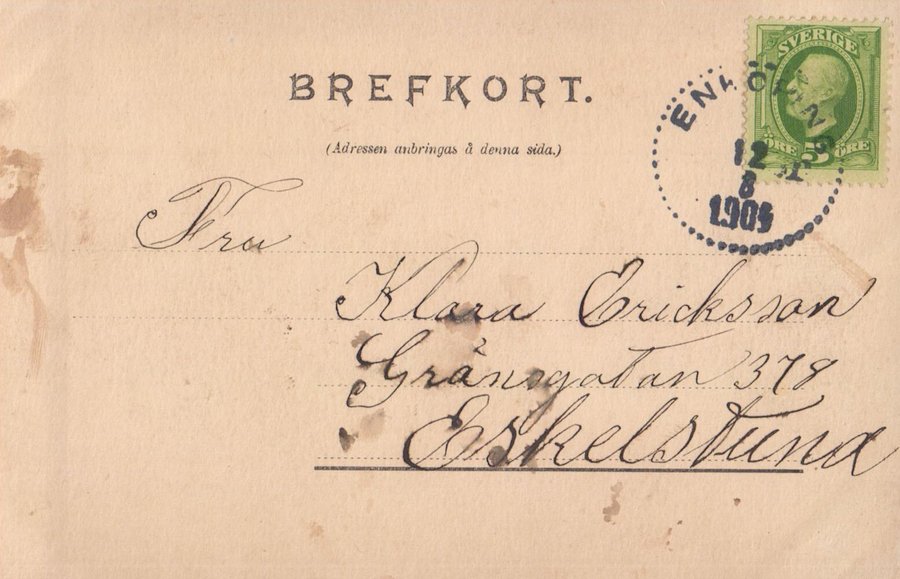 BREFKORT.
(Adressen anbringas å denna sida.)
SVERIGE
5
ÖRE ÖRE
ENKÖPING
12
8
Fru
Klara Ericksson
Gränsgatan 378
Eskelstuna